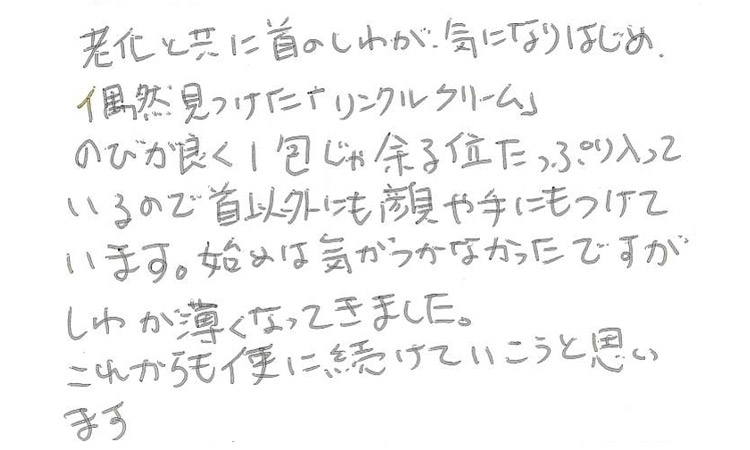 老化と共に首のしわが、気になりはじめ、
偶然見つけた「リンクルクリーム」
のびが良く1包じゃ余る位たっぷり入って
いるので首以外にも顔や手にもつけて
います。始めは気がつかなかったですが
しわが薄くなってきました。
これからも便に続けていこうと思い
ます